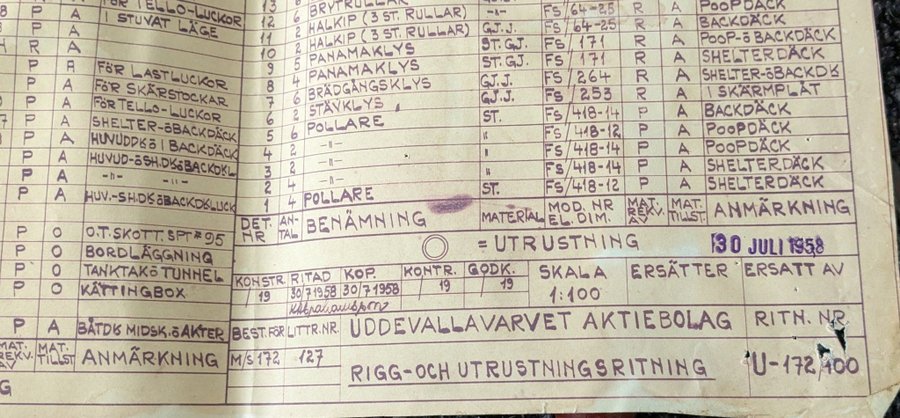 FÖR TELLO-LUCKOR
I STUVAT LÄGE
R A
P A FÖR LASTLUCKOR
P A FÖR SKÄRSTOCKAR
P A FÖR TELLO-LUCKOR
P A SHELTER-ÖBACKDÄCK
P A HUVUDDK Ö I BACKDÄCK
P A HUVUD-ÖSH.DKÖBACKDKL
P A -"- -"-
P A HUV.-SH.DKÖBACKDKLUCK
P O O.T. SKOTT. SPT #95
P O BORDLÄGGNING
P O TANKTAK Ö TUNNEL
P O KÄTTINGBOX
P A BÅTDK MIDSK. Ö AKTER
MAT. REKV. AV MAT. TILLST. ANMÄRKNING
13 6 BRYTRULLAR POOPDÄCK
12 2 HALKIP (3 ST. RULLAR) -"- FS/64-25 R A BACKDÄCK
11 2 HALKIP (3 ST. RULLAR) GJ.J. FS/64-25 R A POOP-ÖBACKDÄCK
10 2 PANAMAKLYS ST.GJ. FS/171 R A SHELTERDÄCK
9 5 PANAMAKLYS ST.GJ. FS/171 R A SHELTER-ÖBACKDK
8 4 BRÄDGÅNGSKLYS GJ.J. FS/264 R A I SKÄRMPLÅT
7 6 STÄVKLYS GJ.J. FS/253 R A BACKDÄCK
6 2 POLLARE ST. FS/418-14 P A POOPDÄCK
5 6 -"- " FS/418-12 P A POOPDÄCK
4 2 -"- " FS/418-14 P A SHELTERDÄCK
3 2 -"- " FS/418-14 P A SHELTERDÄCK
2 4 POLLARE ST. FS/418-12 P A
1 4
DET. NR AN-TAL BENÄMNING MATERIAL MOD. NR EL. DIM. MAT. REKV. AV MAT. TILLST. ANMÄRKNING
= UTRUSTNING 30 JULI 1958
KONSTR. RITAD KOP. KONTR. GODK. SKALA ERSÄTTER ERSATT AV
/ 19 30/7 1958 30/7 1958 / 19 / 19 1:100
BEST. FÖR LITTR. NR. UDDEVALLAVARVET AKTIEBOLAG RITN. NR.
M/S 172 127 RIGG-OCH UTRUSTNINGSRITNING U-172/400